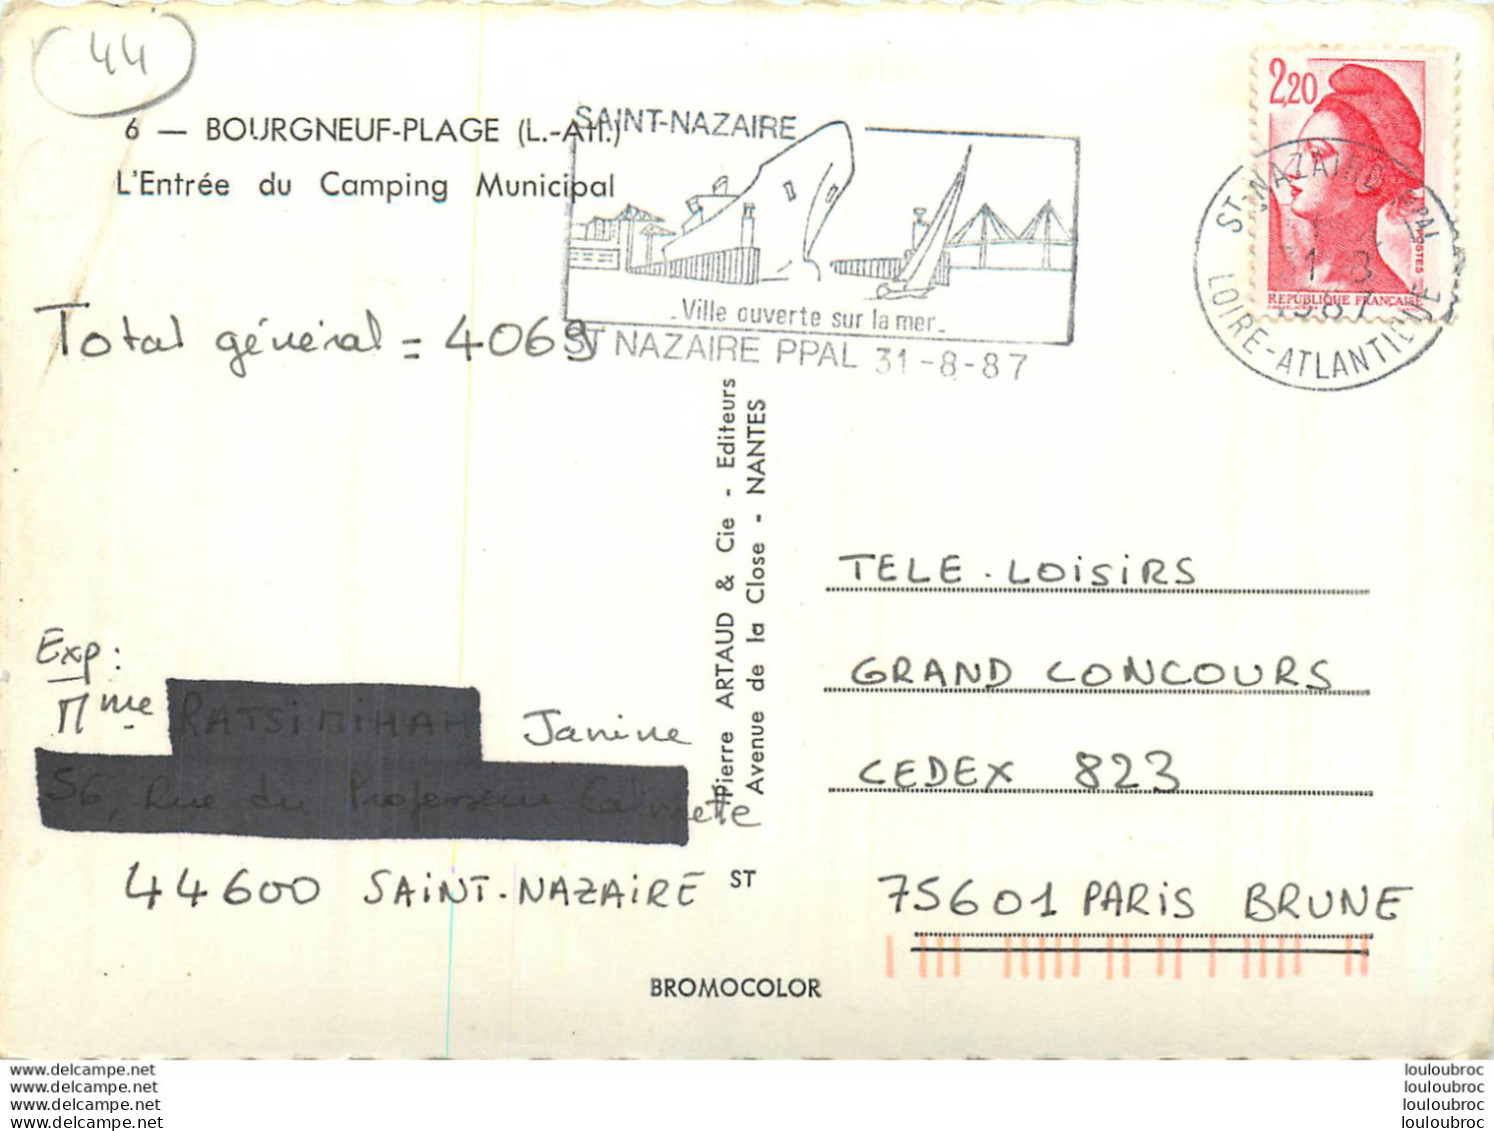 44
6 — BOURGNEUF-PLAGE (L.-Atl.)
L'Entrée du Camping Municipal
SAINT-NAZAIRE
Ville ouverte sur la mer
ST NAZAIRE PPAL 31-8-87
2,20
POSTES
REPUBLIQUE FRANCAISE
ST-NAZAIRE PPAL
31-8
1987
LOIRE-ATLANTIQUE
Total général = 4069
Pierre ARTAUD & Cie - Editeurs
Avenue de la Close - NANTES
TELE-LOISIRS
GRAND CONCOURS
CEDEX 823
75601 PARIS BRUNE
Exp:
Mme Janine
44600 SAINT-NAZAIRE
ST
BROMOCOLOR
www.delcampe.net
www.delcampe.net
www.delcampe.net
www.delcampe.net
louloubroc
louloubroc
louloubroc
louloubroc